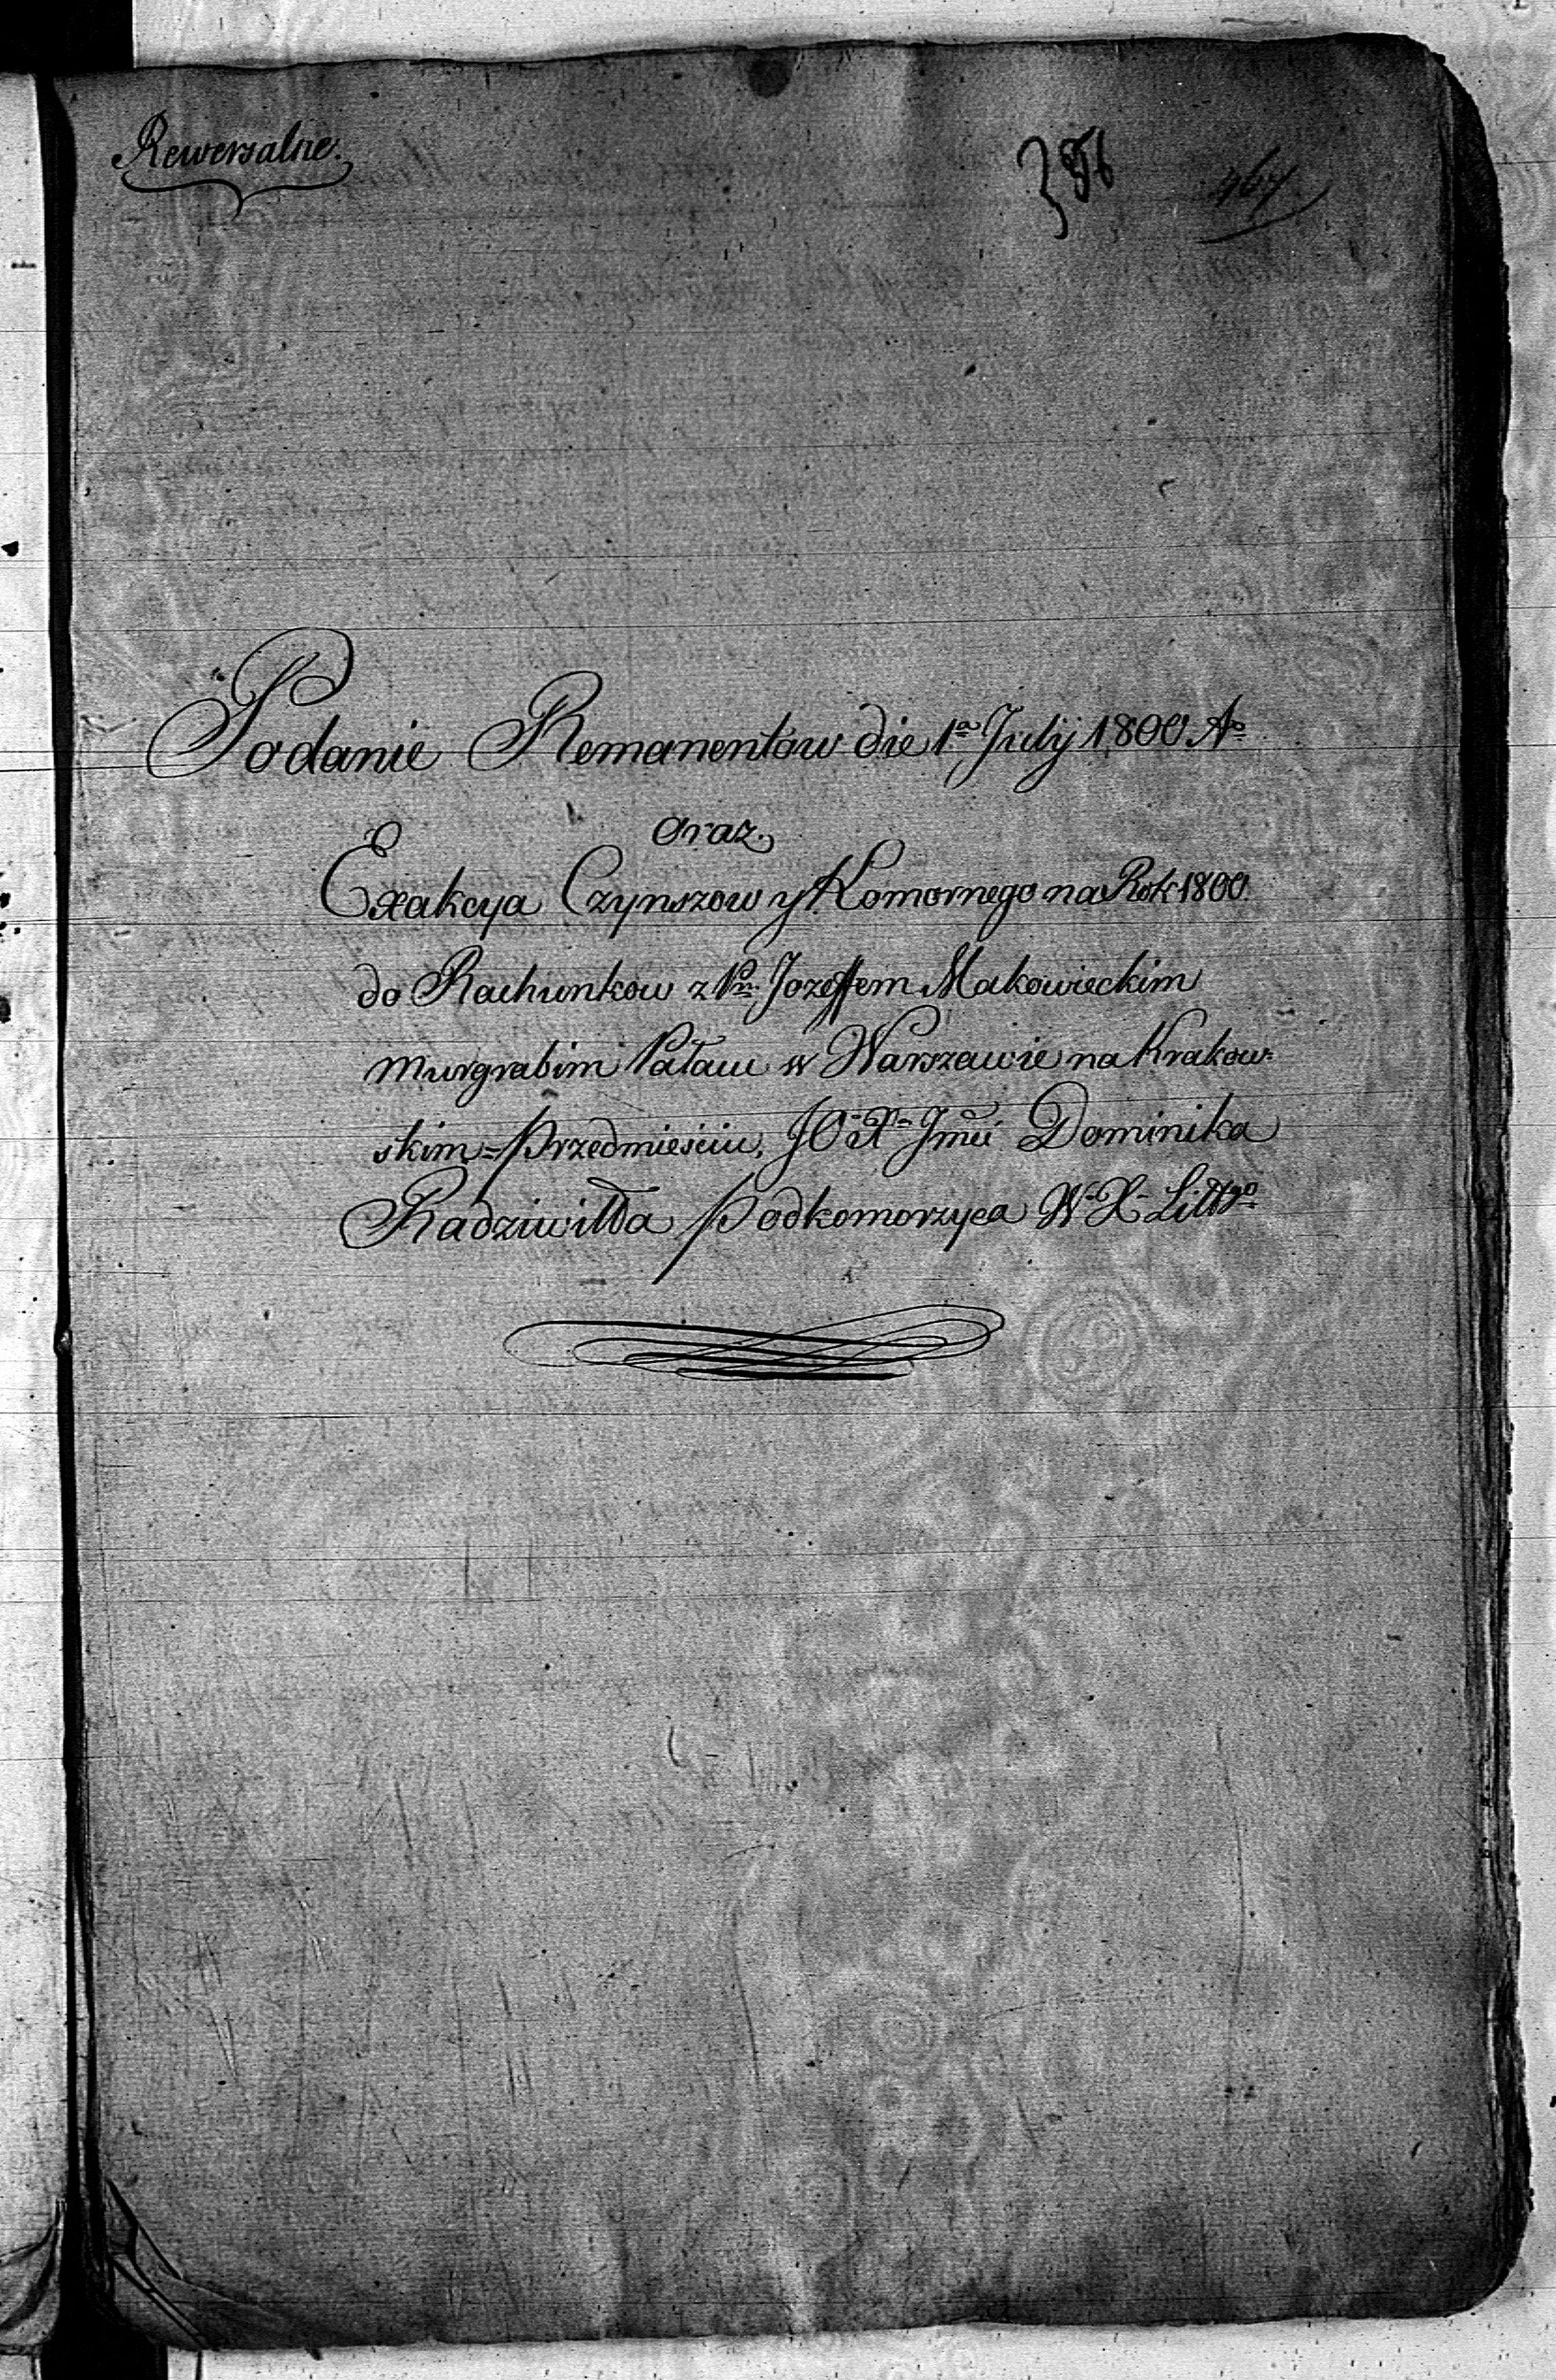 Rewersalne.
396 467
Podanie Remanentow die 1ᵃ July 1800 Aº
oraz.
Exakcya Czynszow y Komornego na Rok 1800.
do Rachunkow z Pm Jozeffem Makowieckim
Murgrabim Pałacu w Warszawie na Krakow=
skim=Przedmieściu, JO X Jmci Dominika
Radziwiłła Podkomorzyca W X Littgo